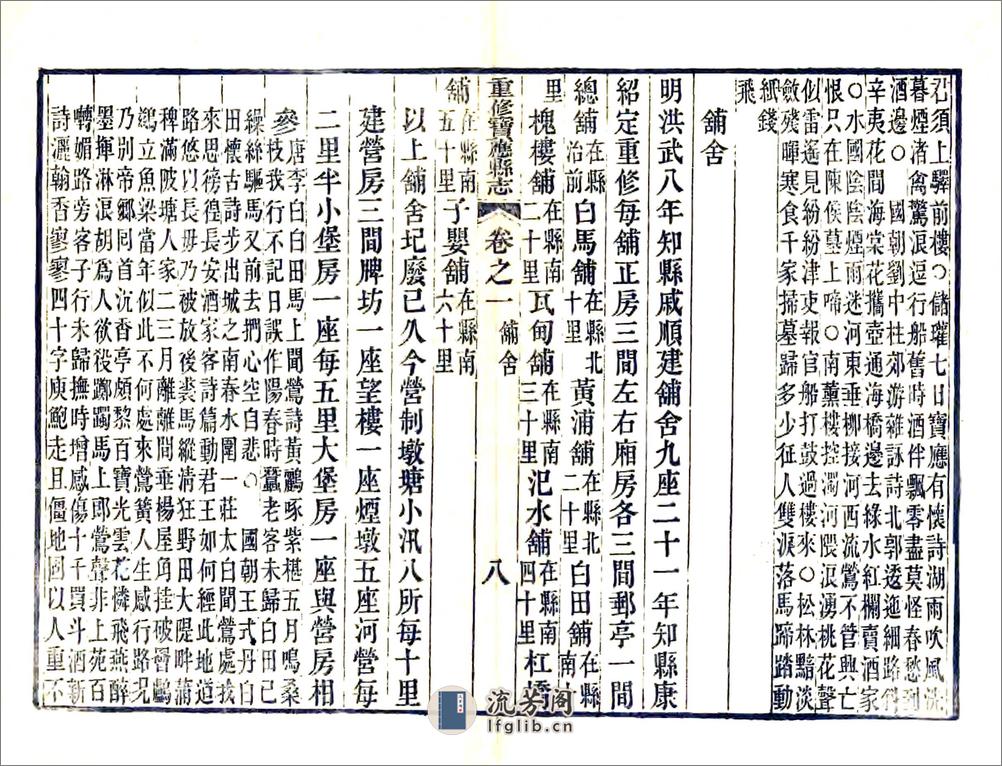 君須上驛前樓○儲瓘七日寶應有懷詩湖雨吹風沈
暮煙渚禽驚浪逗行船舊時酒伴飄零盡莫怪春愁到
酒邊○　國朝劉中柱郊游雜詠詩北郭透迤細路斜
辛夷花間海棠花攜壺通海橋邊去綠水紅欄賣酒家
○水國陰陰煙雨迷河東垂柳接河西流鶯不管興亡
恨只在陳侯墓上啼○南薰樓控濁河隈浪湧桃花聲
似雷遙見紛紛津吏報官船打鼓過樓來○松林黯淡
斂殘暉寒食千家掃墓歸多少征人雙淚落馬蹄踏動
紙錢
飛
舖舍
明洪武八年知縣戚順建舖舍九座二十一年知縣康
紹定重修每舖正房三間左右廂房各三間郵亭一間
總舖在縣治前白馬舖在縣北十里黃浦舖在縣北二十里白田舖在縣南十
里槐樓舖在縣南二十里瓦甸舖在縣南三十里氾水舖在縣南四十里杠橋
舖在縣南五十里子嬰舖在縣南六十里
重修寶應縣志　卷之一　舖舍　八
以上舖舍圮廢已久今營制墩塘小汛八所每十里
建營房三間牌坊一座望樓一座煙墩五座河營每
二里半小堡房一座每五里大堡房一座與營房相
參唐李白白田馬上聞鶯詩黃鸝啄紫椹五月鳴桑
枝我行不記日誤作陽春時蠶老客未歸白田已
繰絲驅馬又前去捫心空自悲○　國朝王式丹白
田懷古詩步出城之南春水圍一莊太白聞鶯處我
來思徬徨長安酒家客詩篇動君王如何經此地道
路悠以長毋乃被放後裘馬縱清狂野田大隄畔蒲
稗滿陂塘人家二三月離離間垂楊屋角挂破罾鸕
鷀立魚梁當年似此不何處來鶯簧人生感行路況
乃別帝鄉回首沉香亭頗黎百寶光雲花憐飛燕醉
墨揮淋浪胡為人欲役躑躅馬上郎鶯聲非上苑百
囀媚路旁客子行未歸撫時增感傷十千買斗酒新
詩灑翰香寥寥四十字庾鮑走且僵地固以人重不
流芳阁
lfglib.cn